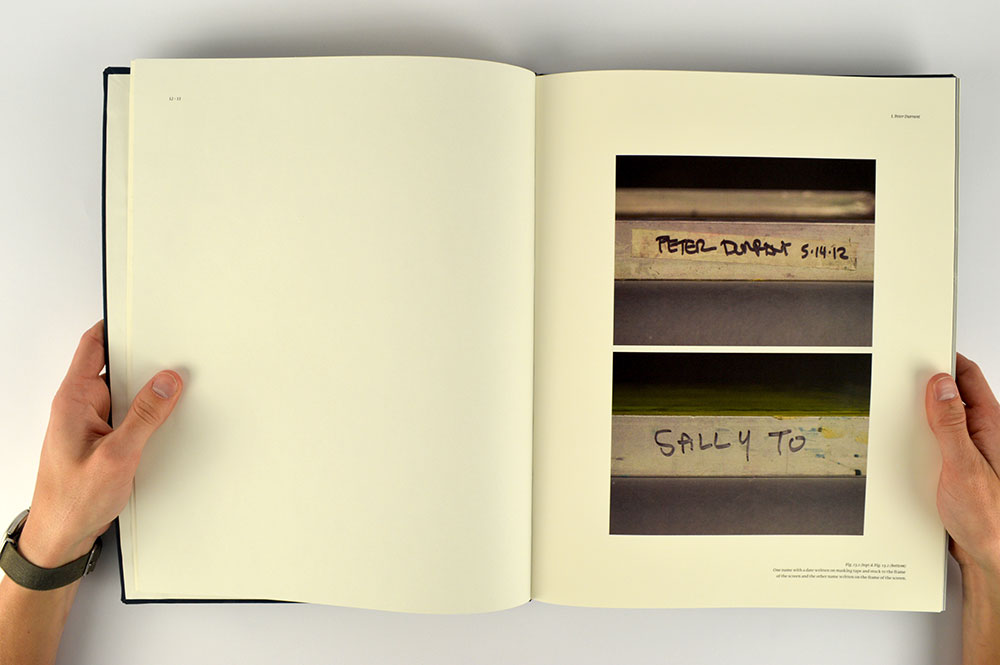 12 - 13
I. Peter Durrant
PETER DURRANT 5·14·12
SALLY TO
Fig. 13.1 (top) & Fig. 13.2 (bottom)
One name with a date written on masking tape and stuck to the frame
of the screen and the other name written on the frame of the screen.